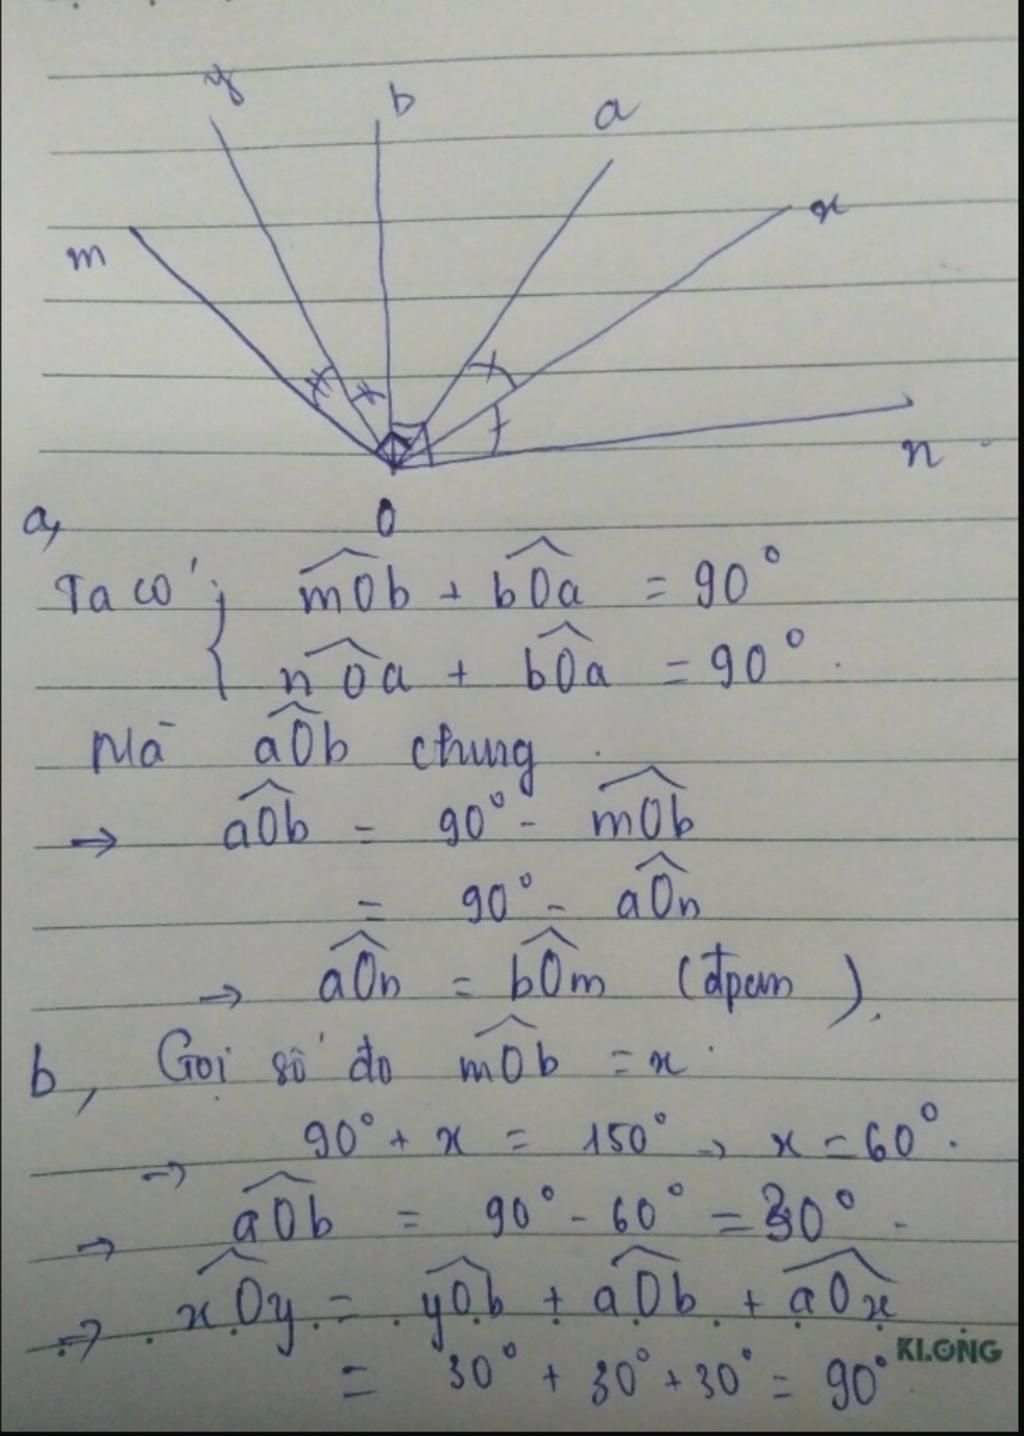 y b a
m x
n
O
a,
Ta có; { m̂Ob + b̂Oa = 90°
n̂Oa + b̂Oa = 90°.
Mà âOb chung.
→ âOb = 90° - m̂Ob
= 90° - âOn
→ âOn = b̂Om (đpcm).
b, Gọi số đo m̂Ob = x.
→ 90° + x = 150° → x = 60°.
→ âOb = 90° - 60° = 30°.
→ x̂Oy = ŷOb + âOb + âOx
= 30° + 30° + 30° = 90°
KLONG